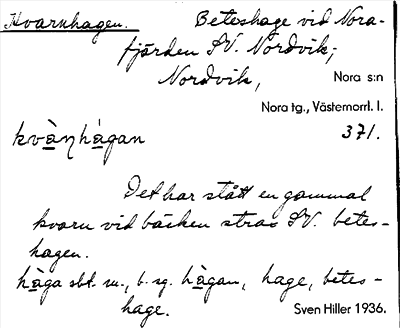 Kvarnhagen. Beteshage vid Nora-
fjärden SV. Nordvik;
Nordvik, Nora s:n
Nora tg., Västernorrl. l.
kvàɳhàgan 371.
Det har stått en gammal
kvarn vid bäcken strax SV. betes-
hagen.
hàga sbt. m., b. sg. hàgan, hage, betes-
hage. Sven Hiller 1936.